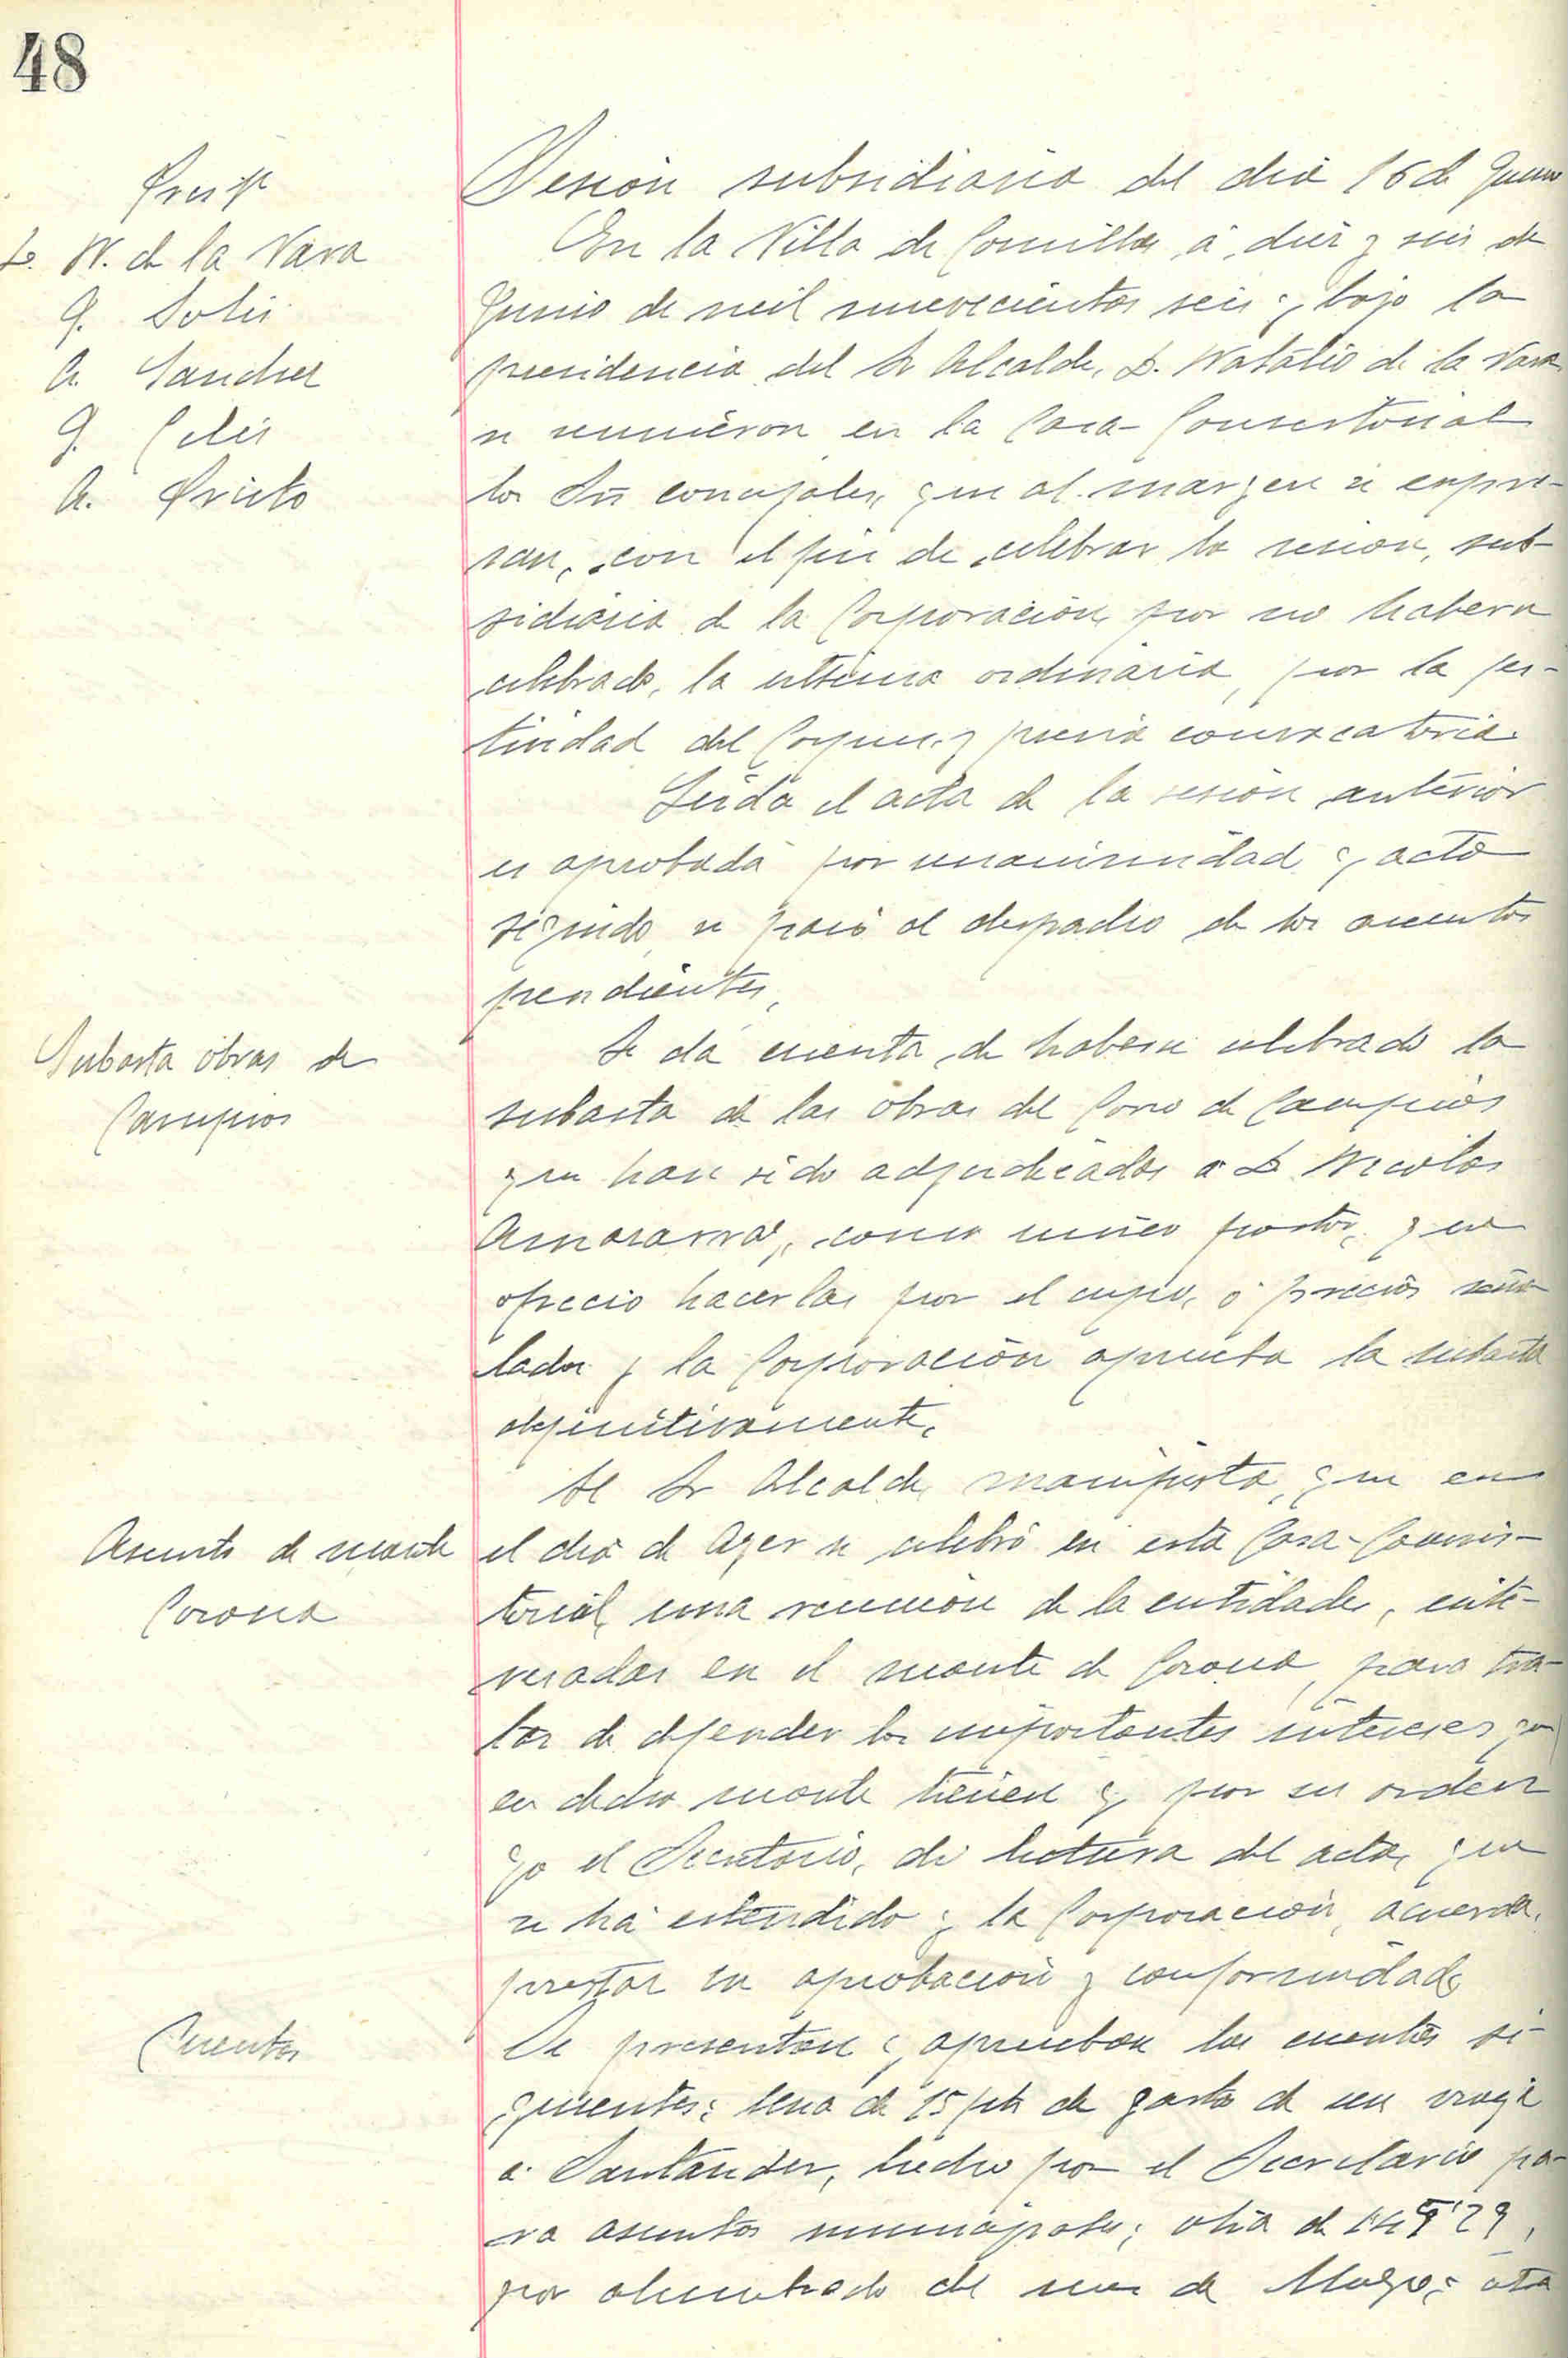 48
Presid.te
D. N. de la Vara
G. Solis
A. Sanchez
G. Celis
A. Prieto
Sesion subsidiaria del dia 16 de Junio
En la Villa de Comillas, á diez y seis de
Junio de mil nuevecientos seis y bajo la
presidencia del Sr Alcalde, D. Natalio de la Vara
se reunieron en la Casa-Consistorial
los Srs concejales, que al margen se expre-
san, con el fin de celebrar la sesion, sub-
sidiaria de la Corporación, por no haberse
celebrado, la ultima ordinaria, por la fes-
tividad del Corpus, y previa convocatoria.
Leida el acta de la sesión anterior
es aprobada por unanimidad y acto
seguido se pasó al despacho de los asuntos
pendientes,
Subasta obras de
Campios
Se dá cuenta, de haberse celebrado la
subasta de las obras del Corro de Campios
que han sido adjudicadas a D. Nicolas
, como unico postor, que
ofrecio hacerlas por el cupo, ó precios seña
lados y la Corporación aprueba la subasta
definitivamente.
Asunto de monte
Corona
El Sr Alcalde, manifiesta, que en
el dia de Ayer se celebró en esta Casa-Consis-
torial, una reunión de la entidades, inte-
resadas en el monte de Corona, para tra-
tar de defender los importantes intereses que
en dicho monte tienen y por su orden
yo el Secretario, di lectura del acta, que
se ha estendido y la Corporación, acuerda,
prestar su aprobación y conformidad,
Cuentas
Se presentan y aprueban las cuentas si-
guientes: Una de 15 pts de gastos de un viaje
a Santander, hecho por el Secretario pa-
ra asuntos municipales; otra de 149'29,
por alumbrado del mes de Mayo; otra